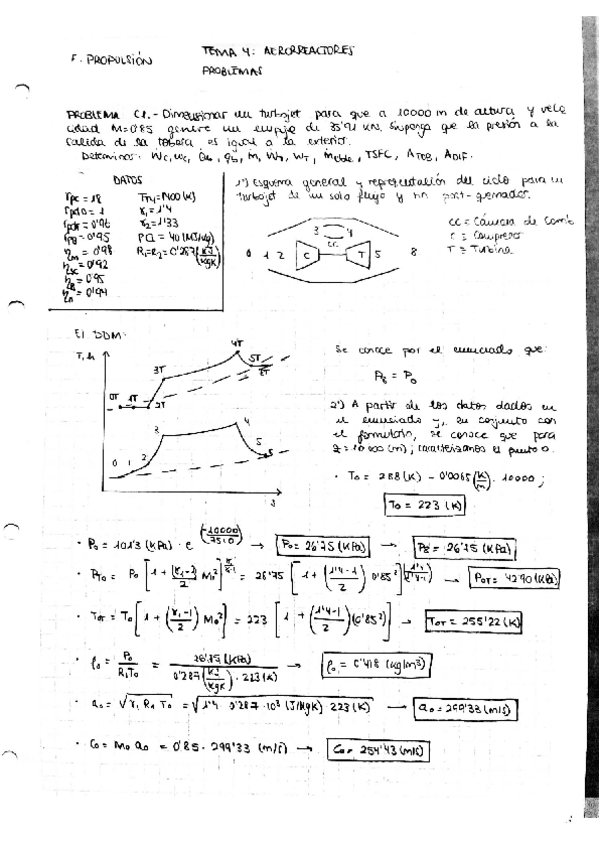 F. PROPULSIÓN
TEMA 4: AERORREACTORES
PROBLEMAS
PROBLEMA C1.- Dimensionar un turbojet para que a 10000 m de altura y velo
cidad M=0'85 genere un empuje de 35'91 kN. Suponga que la presión a la
salida de la tobera es igual a la exterior.
Determinar: TSFC, ATOB, ADIF.
DATOS
1º) Esquema general y representación del ciclo para un
turbojet de un solo flujo y sin post-quemador.
rpc = 18
γ1 = 1'4
γ2 = 1'33
PCI = 40 (MJ/kg)
R1=R2=0'287 (kJ/kgK)
CC = Cámara de comb
C = Compresor
T = Turbina
0 1 2 C 3 CC 4 T 5 8
El DDM:
T, h
0T 1T 2T 3T 4T 5T 8T
0 1 2 3 4 5 8
s
Se conoce por el enunciado que:
P8 = P0
2º) A partir de los datos dados en
el enunciado y, en conjunto con
el formulario, se conoce que para
z=10000(m); caracterizamos el punto 0.
· T0 = 288 (K) - 0'0065 (K/m) · 10000;
T0 = 223 (K)
· P0 = 101'3 (kPa) · e^(-10000/7510) → P0 = 26'75 (kPa) → P8 = 26'75 (kPa)
· PT0 = P0 [1 + (γ1-1/2) M0²]^(γ1/γ1-1) = 26'75 [1 + (1'4-1/2) 0'85²]^(1'4/1'4-1) → P0T = 42'90 (kPa)
· T0T = T0 [1 + (γ1-1/2) M0²] = 223 [1 + (1'4-1/2)(0'85²)] → T0T = 255'22 (K)
· ρ0 = P0/R1T0 = 26'75 (kPa)/0'287 (kJ/kgK) · 223 (K) → ρ0 = 0'418 (kg/m3)
· a0 = √γ1 R0 T0 = √1'4 · 0'287 · 10³ (J/kgK) 223 (K) → a0 = 299'33 (m/s)
· C0 = M0 a0 = 0'85 · 299'33 (m/s) → C0 = 254'43 (m/s)